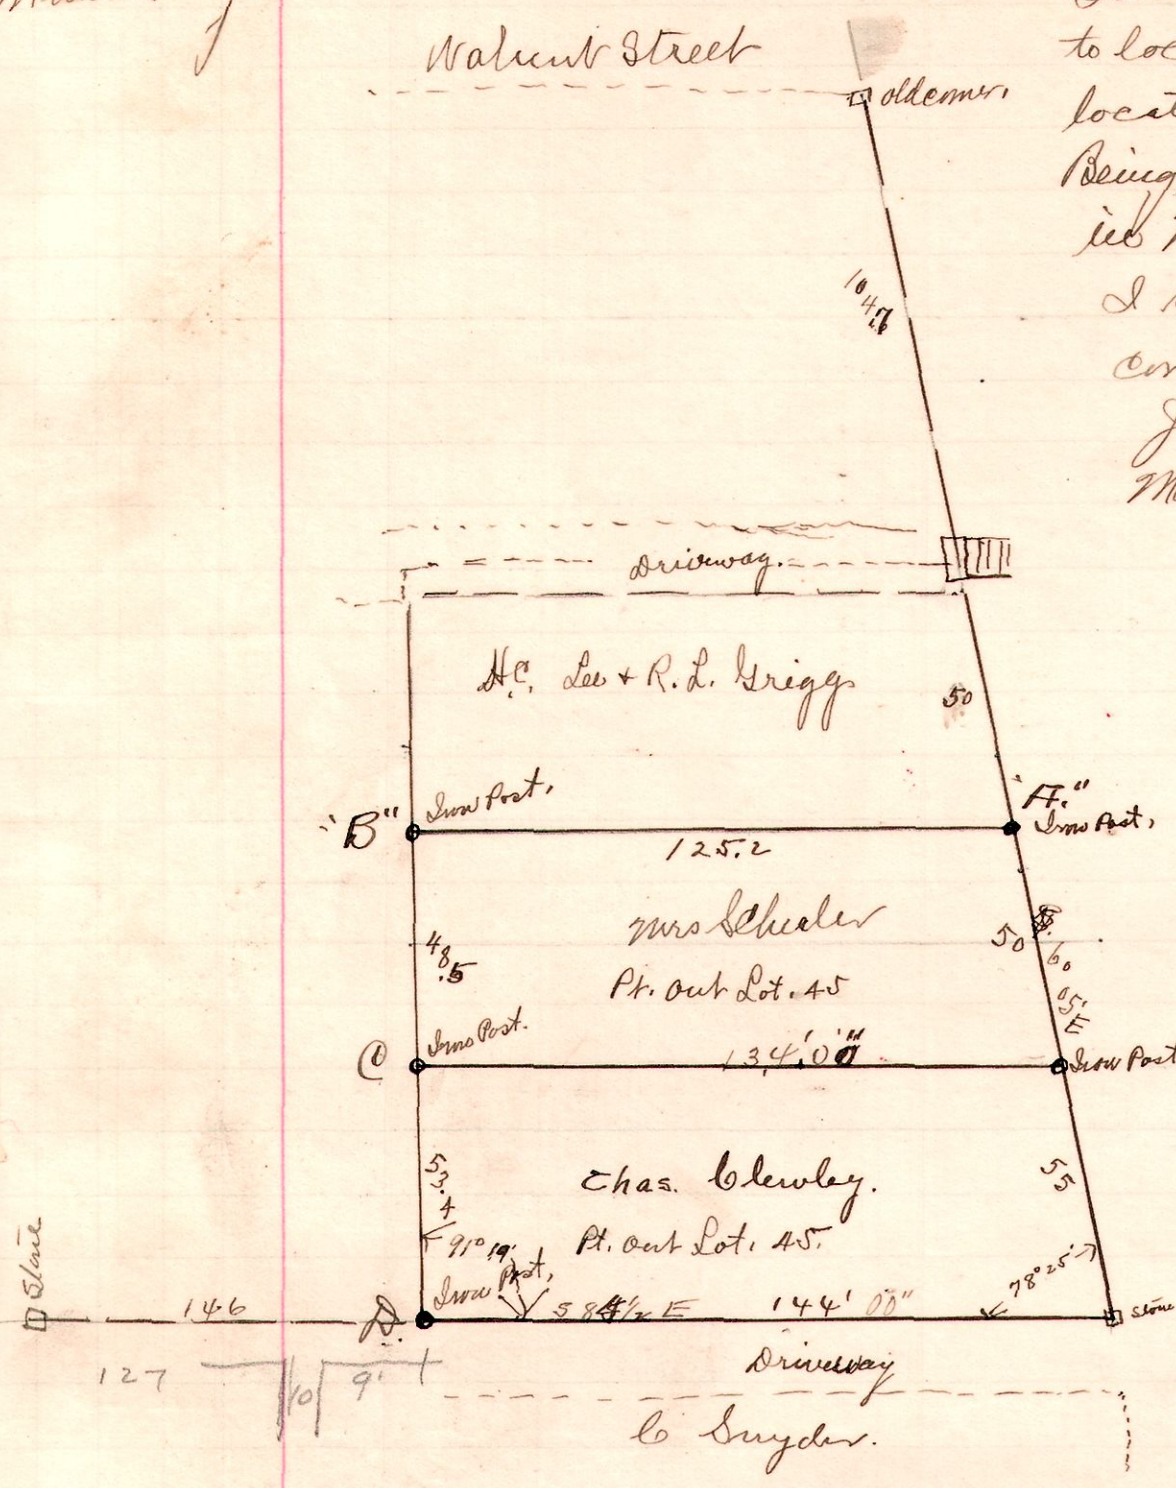 Walnut Street
old corner.
to loc
locat
Being
in
I
con
104.7
Driveway.
H.C. Lee & R. L. Griggs
50
"B"
Iron Post.
"A."
Iron Post,
125.2
Mrs Schuler
Pt. Out Lot. 45
48.5
50
S. 6° 05' E
C
Iron Post.
134.'0"
Iron Post
53.4
Chas. Clewley.
Pt. Out Lot. 45.
55
91° 19'
78° 25'
Stone
146
D.
Iron Post,
S 84 1/2 E
144' 00"
Stone
127
10
9'
Driveway
C Snyder.